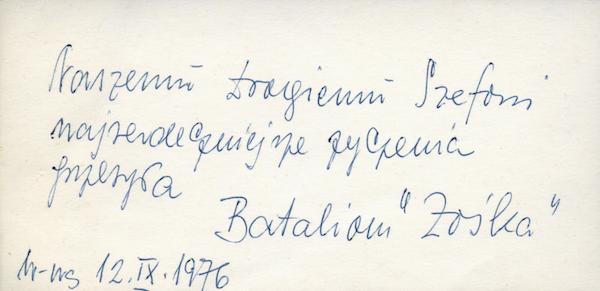 Naszemu Drogiemu Szefowi
najserdeczniejsze życzenia
przesyła
Batalion "Zośka"
W-wa 12.IX.1976